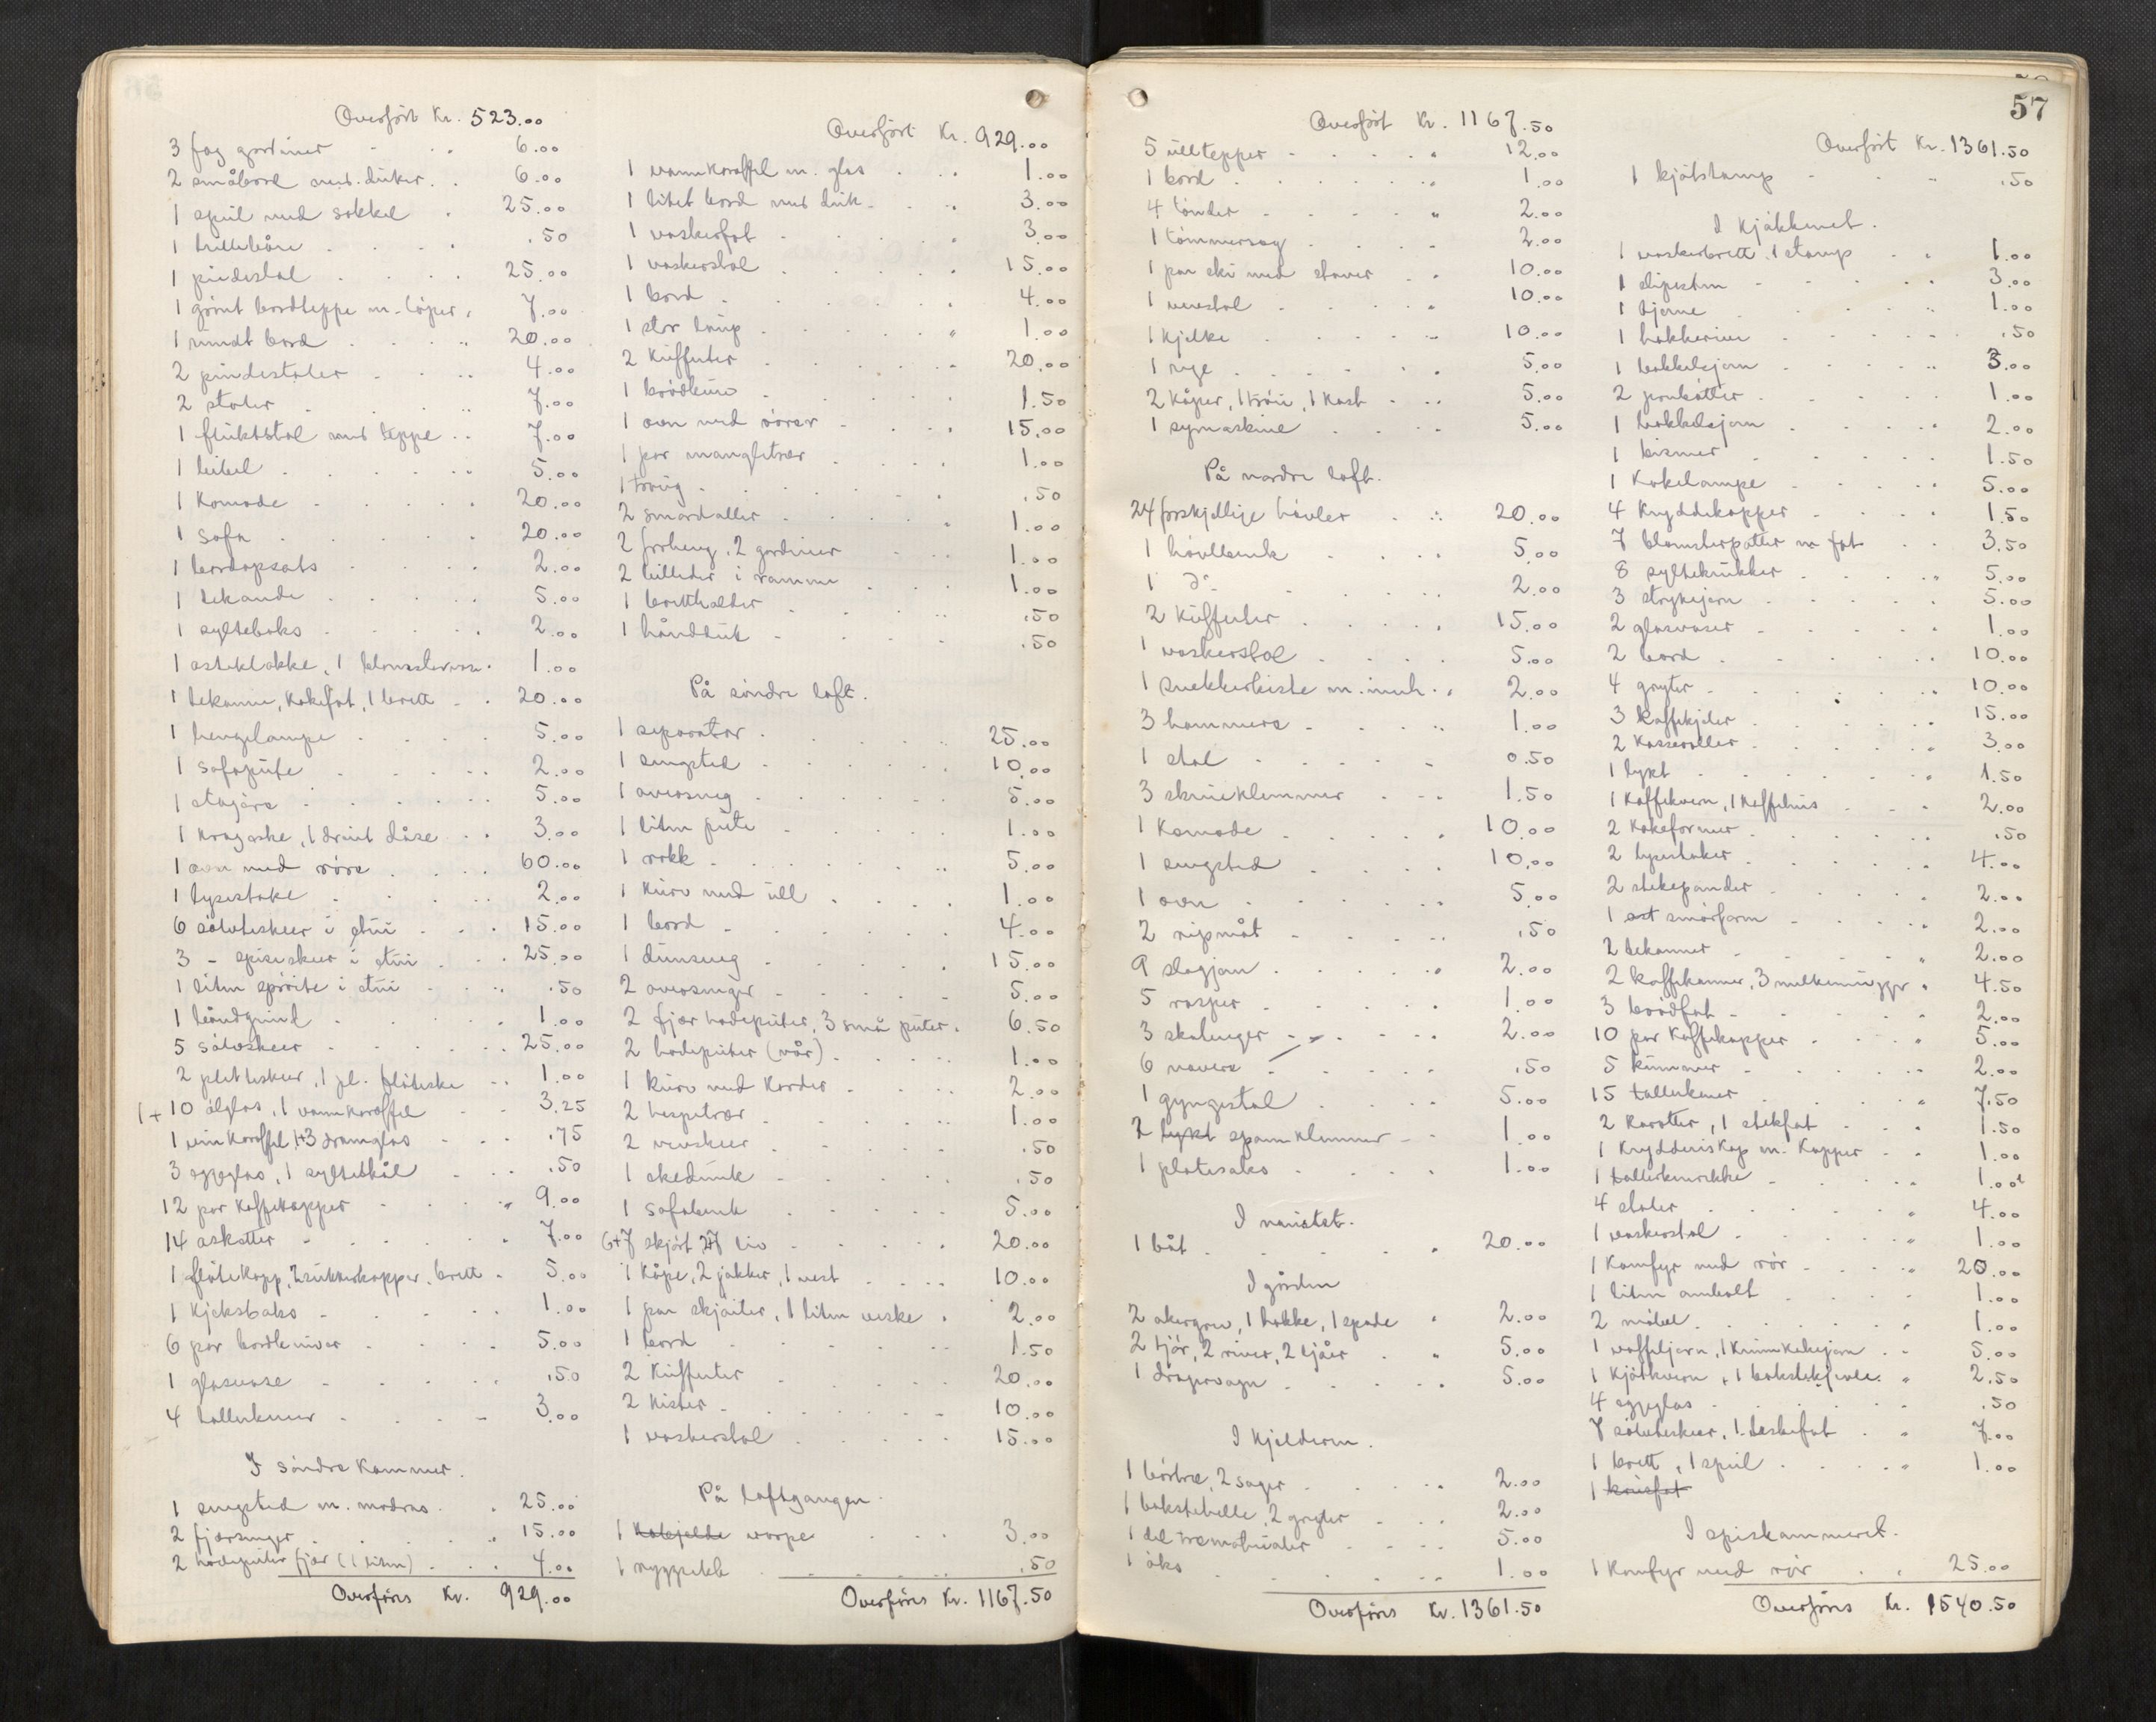 Overført Kr. 523.00
3 fag gardiner 6.00
2 småbord med duker 6.00
1 speil med sokkel 25.00
1 trillebåre .50
1 piedestal 25.00
1 grønt bordteppe m. løper 7.00
1 rundt bord 20.00
2 pindestoler 4.00
2 stoler 7.00
1 fluktstol med teppe 7.00
1 bibel 5.00
1 Komode 20.00
1 Sofa 20.00
1 bordopsats 2.00
1 tekande 5.00
1 sylteboks 2.00
1 osteklokke, 1 blomstervase 1.00
1 tekanne, Kakefat, 1 brett 20.00
1 hengelampe 5.00
1 sofapute 2.00
1 etajere 5.00
1 Krageske, 1 dåse 3.00
1 ovn med rörer 60.00
1 lysestake 2.00
6 sölvteskeer i etui 15.00
3 - spiseskeer i etui 25.00
1 liten spröite i etui .50
1 1.00
5 Sölvskeer 25.00
2 pletteskeer, 1 pl. flöteske 1.00
1+ 10 ölglas, 1 vannkaraffel 3.25
1 vinkaraffel, 1+3 dramglas .75
3 eggeglas, 1 syltebål .50
12 par Kaffekopper 9.00
14 asketter 7.00
1 flötekopp, 2 sukkerkopper, brett 5.00
1 Kjeksboks 1.00
6 par bordkniver 5.00
1 glasvase .50
4 tallerkener 3.00
I söndre Kammer.
1 sengested m. madras 25.00
2 fjærsenger 15.00
2 hodeputer fjær (1 liten) 4.00
Overføres Kr. 929.00
Overført Kr. 929.00
1 vannkaraffel m. glas 1.00
1 litet bord med duk 3.00
1 vaskefat 3.00
1 vaskerstol 15.00
1 bord 4.00
1 stor 1.00
2 Kufferter 20.00
1 1.50
1 ovn med rörer 15.00
1 par mangletrær 1.00
1 traug .50
2 1.00
2 forheng, 2 gardiner 1.00
2 billeder i ramme 1.00
1 brettholder .50
1 håndduk .50
På söndre loft.
1 separator 25.00
1 sengsted 10.00
1 overseng 5.00
1 liten pute 1.00
1 rokk 5.00
1 Kurv med ull 1.00
1 bord 4.00
1 dunseng 15.00
2 oversenger 5.00
2 fjær hodeputer, 3 små puter 6.50
2 hodeputer (vår) 1.00
1 Kurv med Karder 2.00
2 hespetrær 1.00
2 vevskeer .50
1 .50
1 sofabenk 5.00
6+7 skjört, 7 liv 20.00
1 Kåpe, 2 jakker, 1 vest 10.00
1 par skjöiter, 1 liten veske 2.00
1 bord 1.50
2 Kufferter 20.00
2 Kister 10.00
1 vaskerstol 15.00
På loftgangen.
1 3.00
1 .50
Overføres Kr. 1167.50
57
Overført Kr. 1167.50
5 ulltepper 12.00
1 bord 1.00
4 tönder 2.00
1 tömmersag 2.00
1 par ski med staver 10.00
1 vevstol 10.00
1 Kjelke 10.00
1 5.00
2 Kåper, 1 tröie, 1 Kast 5.00
1 symaskine 5.00
På nordre loft.
24 forskjellige hövler 20.00
1 hövlbenk 5.00
1 do 2.00
2 Kufferter 15.00
1 vaskerstol 5.00
1 snekkerkiste m. innh. 2.00
3 hammere 1.00
1 stol 0.50
3 skrueklemmer 1.50
1 Komode 10.00
1 sengsted 10.00
1 ovn 5.00
2 ripmåt .50
9 stagjern 2.00
5 rasper 1.00
3 2.00
6 navere .50
1 gyngestol 5.00
2 lykt spannklemmer 1.00
1 platesaks 1.00
I naustet.
1 båt 20.00
I gården
2 akergrev, 1 hakke, 1 spade 2.00
2 tjör, 2 river, 2 ljåer 5.00
1 dragervogn 5.00
I Kjelderen.
1 börtre, 2 sager 2.00
1 bakstehelle, 2 gryter 2.00
1 del trematerialer 5.00
1 öks 1.00
Overføres Kr. 1361.50
Overført Kr. 1361.50
1 kjötstamp .50
I Kjökkenet.
1 vaskebrett, 1 stamp 1.00
1 slipesten 3.00
1 kjerne 1.00
1 .50
1 bakkelsjern 3.00
2 1.00
1 bakkelsjern 2.00
1 bismer 1.50
1 Kokelampe 5.00
4 Kryddekopper 1.50
7 blomsterpotter m fat 3.50
8 syltekrukker 5.00
3 strykejern 5.00
2 glasvaser 1.00
2 bord 10.00
4 gryter 10.00
3 Kaffekjeler 15.00
2 Kasseroller 3.00
1 lykt 1.50
1 Kaffekvern, 1 Kaffehus 2.00
2 Kakeformer .50
2 lysestaker 4.00
2 stekepander 2.00
1 ost smörform 2.00
2 tekanner 2.00
2 Kaffekanner, 3 melkemugger 4.50
3 brödfat 2.00
10 par Kaffekopper 5.00
5 Kummer 2.00
15 tallerkener 7.50
2 Karotter, 1 stekfat 1.50
1 Krydderiskap m. Kopper 1.00
1 tallerkenrekke 1.00
4 stoler 4.00
1 vaskerstol 1.00
1 Komfyr med rör 20.00
1 liten ambolt 1.00
2 1.00
1 vaffeljern, 1 Krumkakejern 5.00
1 Kjötkvern, 1 bakstekjevle 2.50
4 eggeglas .50
7 sölvteskeer, 1 teskefat 7.00
1 brett, 1 speil 1.00
1
I spiskammeret.
1 Komfyr med rör 25.00
Overføres Kr. 1540.50